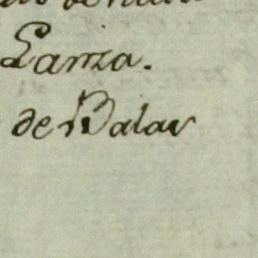 Lanza.
de Balar